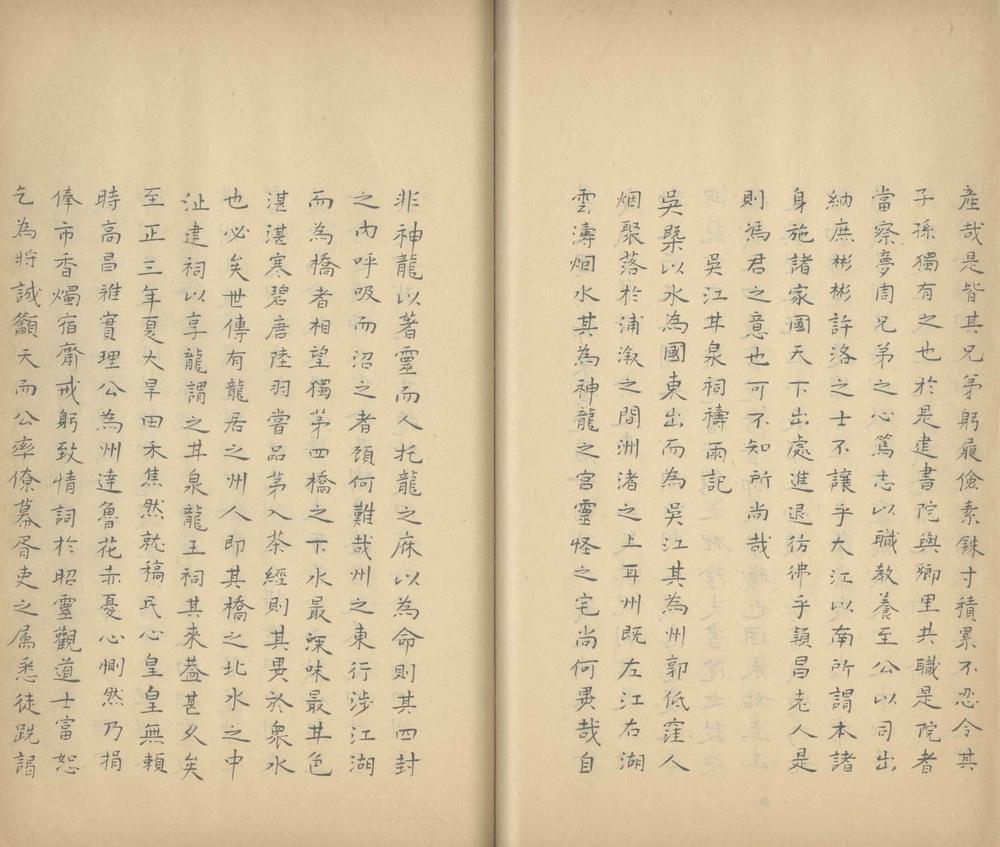 產哉是皆其兄弟躬𤸷儉素銖寸積累不忍令其
子孫獨有之也於是建書院與鄉里共職是院者
當察夢周兄弟之心篤志以職教養至公以司出
納庶彬彬許洛之士不讓乎大江以南所謂本諸
身施諸家國天下出處進退彷彿乎潁昌老人是
則馮君之意也可不知所尚哉
吳江井泉祠禱雨記
吳槩以水為國東出而為吳江其為州郭低窪人
烟聚落於浦漵之間洲渚之上耳州既左江右湖
雲濤烟水其為神龍之宮靈怪之宅尚何異哉自
非神龍以著靈而人托龍之庥以為命則其四封
之內呼吸而沼之者頋何難哉州之東行涉江湖
而為橋者相望獨茅四橋之下水最深味最甘色
湛湛寒碧唐陸羽嘗品茅入茶經則其異於衆水
也必矣世傳有龍居之州人即其橋之北水之中
沚建祠以享龍謂之甘泉龍王祠其來葢甚久矣
至正三年夏大旱田禾焦然就稿民心皇皇無賴
時高昌雅實理公為州達魯花赤憂心惻然乃捐
俸市香燭宿齋戒躬致情詞於昭靈觀道士富恕
乞為將誠籲天而公率僚幕胥吏之属悉徒跣謁